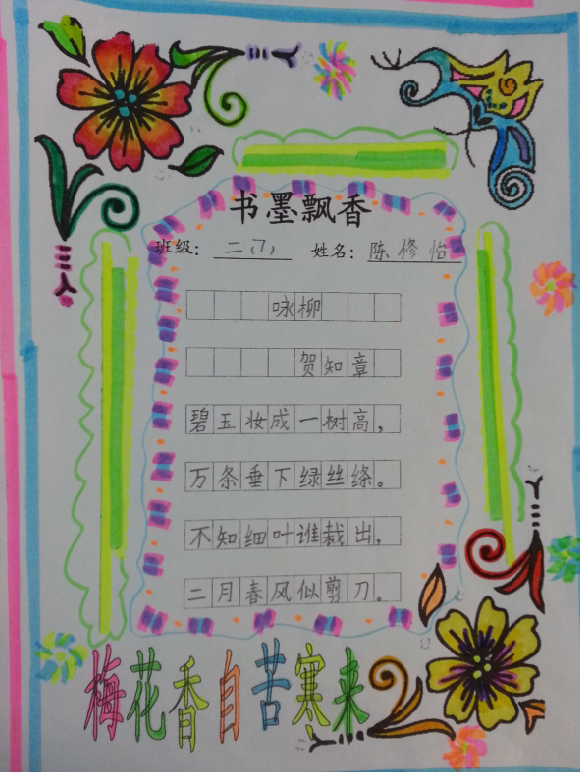 书墨飘香
班级：二（7） 姓名：陈修怡
咏柳
贺知章
碧玉妆成一树高，
万条垂下绿丝绦。
不知细叶谁裁出，
二月春风似剪刀。
梅花香自苦寒来